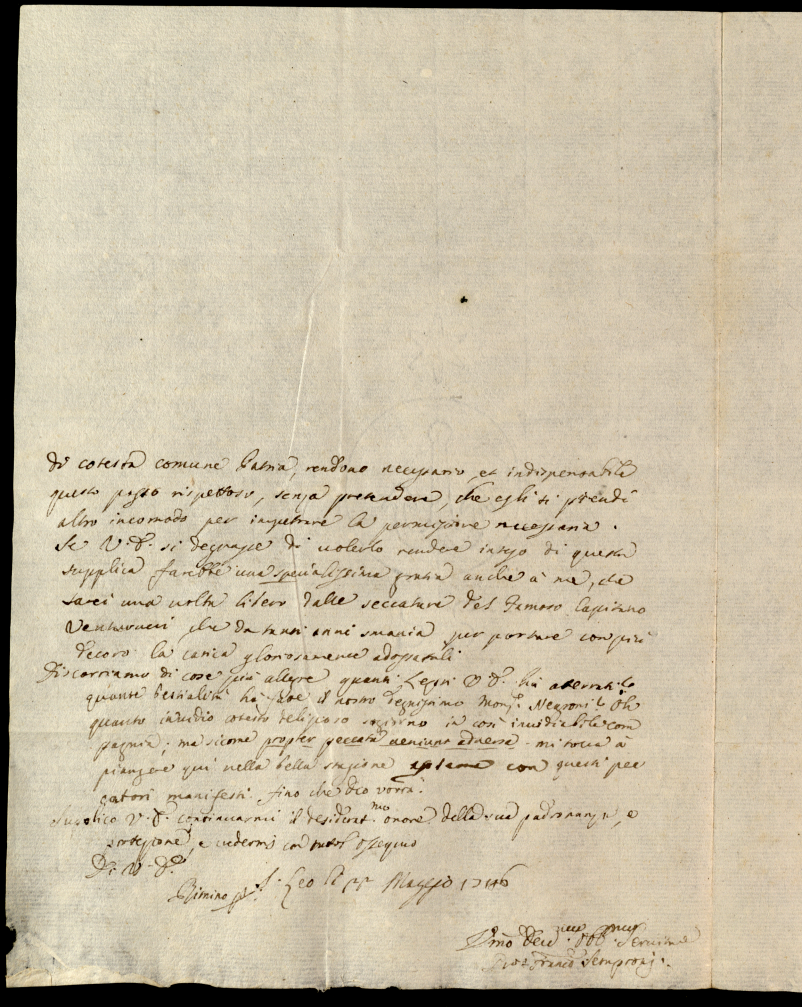 di cotesta comune Patria, rendono necessario, et indispensabile
questo passo rispettoso, senza pretendere, che egli si prendi
altro incomodo per impetrare la permissione necessaria.
Se V. S. si degnasse di volerlo rendere inteso di questa
supplica farebbe una specialissima grazia anche à me, che
sarei una volta libero dalle seccature del famoso Capitano
Venturucci che da tanti anni smania per portare con più
decoro la carica gloriosamente adossatali
Discorriamo di cose più allegre quanti Lepri V. S. hà atterrati?
quante bestialità hà fatte il nostro degnissimo Mons. Negroni? Oh
quanto invidio cotesto delizioso soggiorno in così invidiabile com
pagnia; ma sicome propter peccata veniunt adversa mi tocca à
piangere qui nella bella stagione con questi pec
catori manifesti fino che Dio vorrà.
Supplico V. S. continuarmi il desiderat.mo onore della sua padronanza, e
protezione, e vedermi con tutto l'ossequio
Di V. S.
Rimino p. S. Leo li 22 Maggio 1746
Umo Dev.mo Obb. Servitore
Franco Semproni